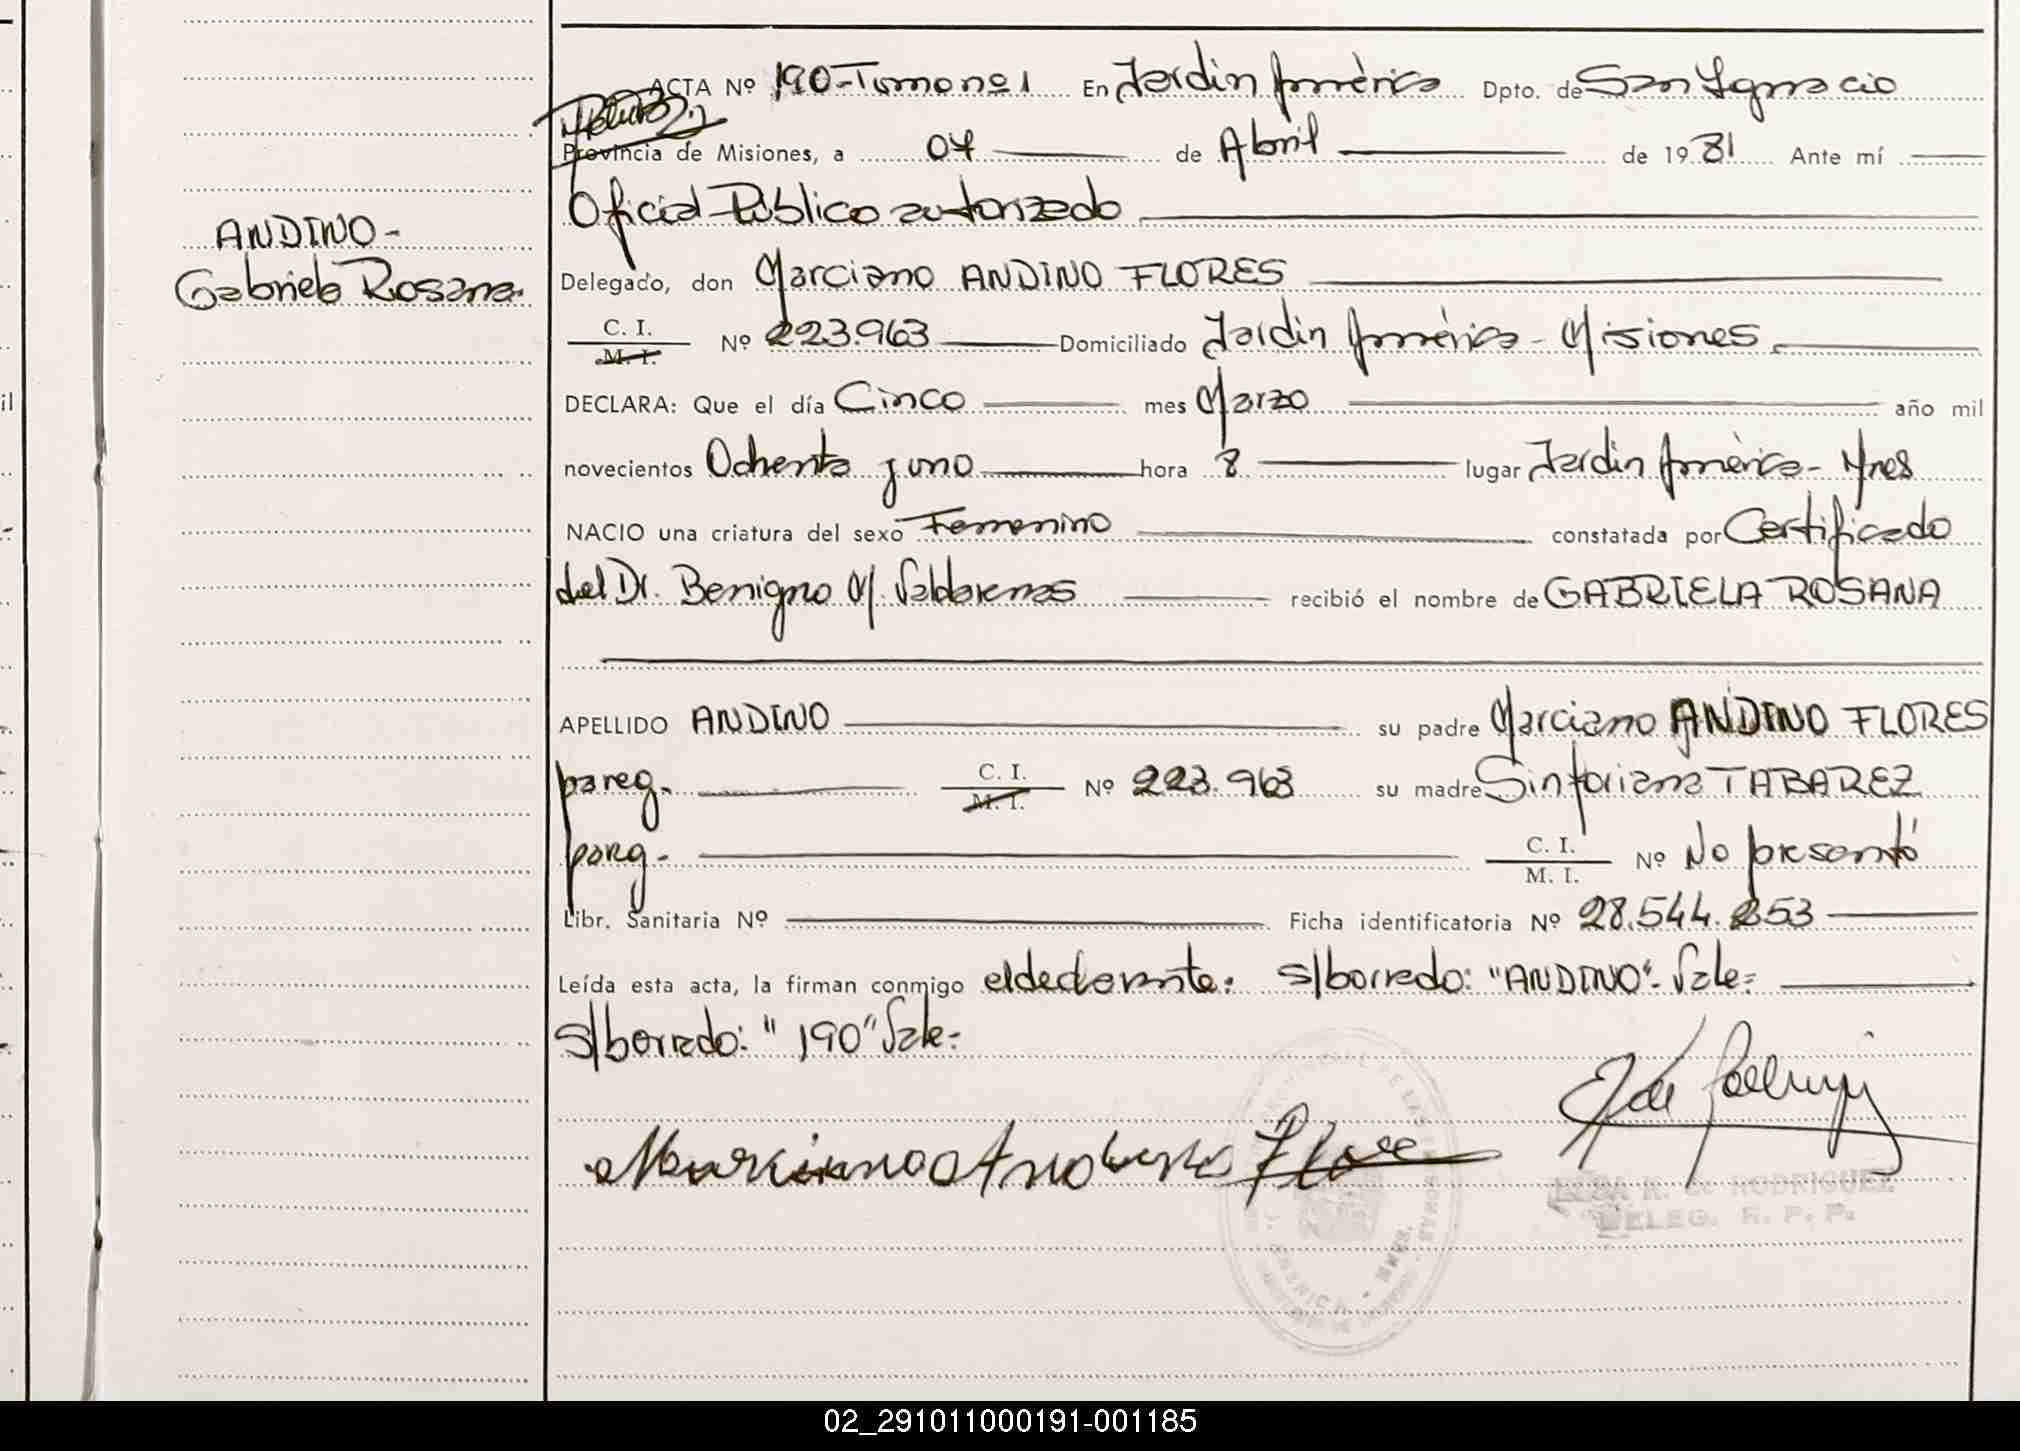 ACTA Nº 190-Tomo nº1 En Jardin América Dpto. de San Ignacio
Provincia de Misiones, a 04 de Abril de 1981 Ante mí
Oficial Público autorizado
ANDINO-
Gabriela Rosana.
Delegado, don Marciano ANDINO FLORES
C. I.
M. I.
Nº 223.963 Domiciliado Jardin América - Misiones
DECLARA: Que el día Cinco mes Marzo año mil
novecientos Ochenta y uno hora 8 lugar Jardin América - Mnes
NACIO una criatura del sexo Femenino constatada por Certificado
del Dr. Benigno M. recibió el nombre de GABRIELA ROSANA
APELLIDO ANDINO su padre Marciano ANDINO FLORES
pareg. C. I. M. I. Nº 223.963 su madre Sinforiana TABAREZ
parg- C. I. M. I. Nº No presentó
Libr. Sanitaria Nº Ficha identificatoria Nº 28.544.253
Leída esta acta, la firman conmigo el declarante: s/borrado: "ANDINO"- Vale:
s/borrado: "190" Vale:
Marciano Flores
R. de RODRIGUEZ
DELEG. R. P. P.
02_291011000191-001185